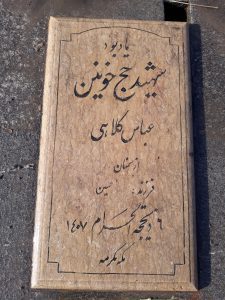 یادبود
شهید حج خونین
عباس کلاهی
از سمنان
فرزند: حسین
۶ ذیحجه الحرام ۱۴۰۷
مکه مکرمه